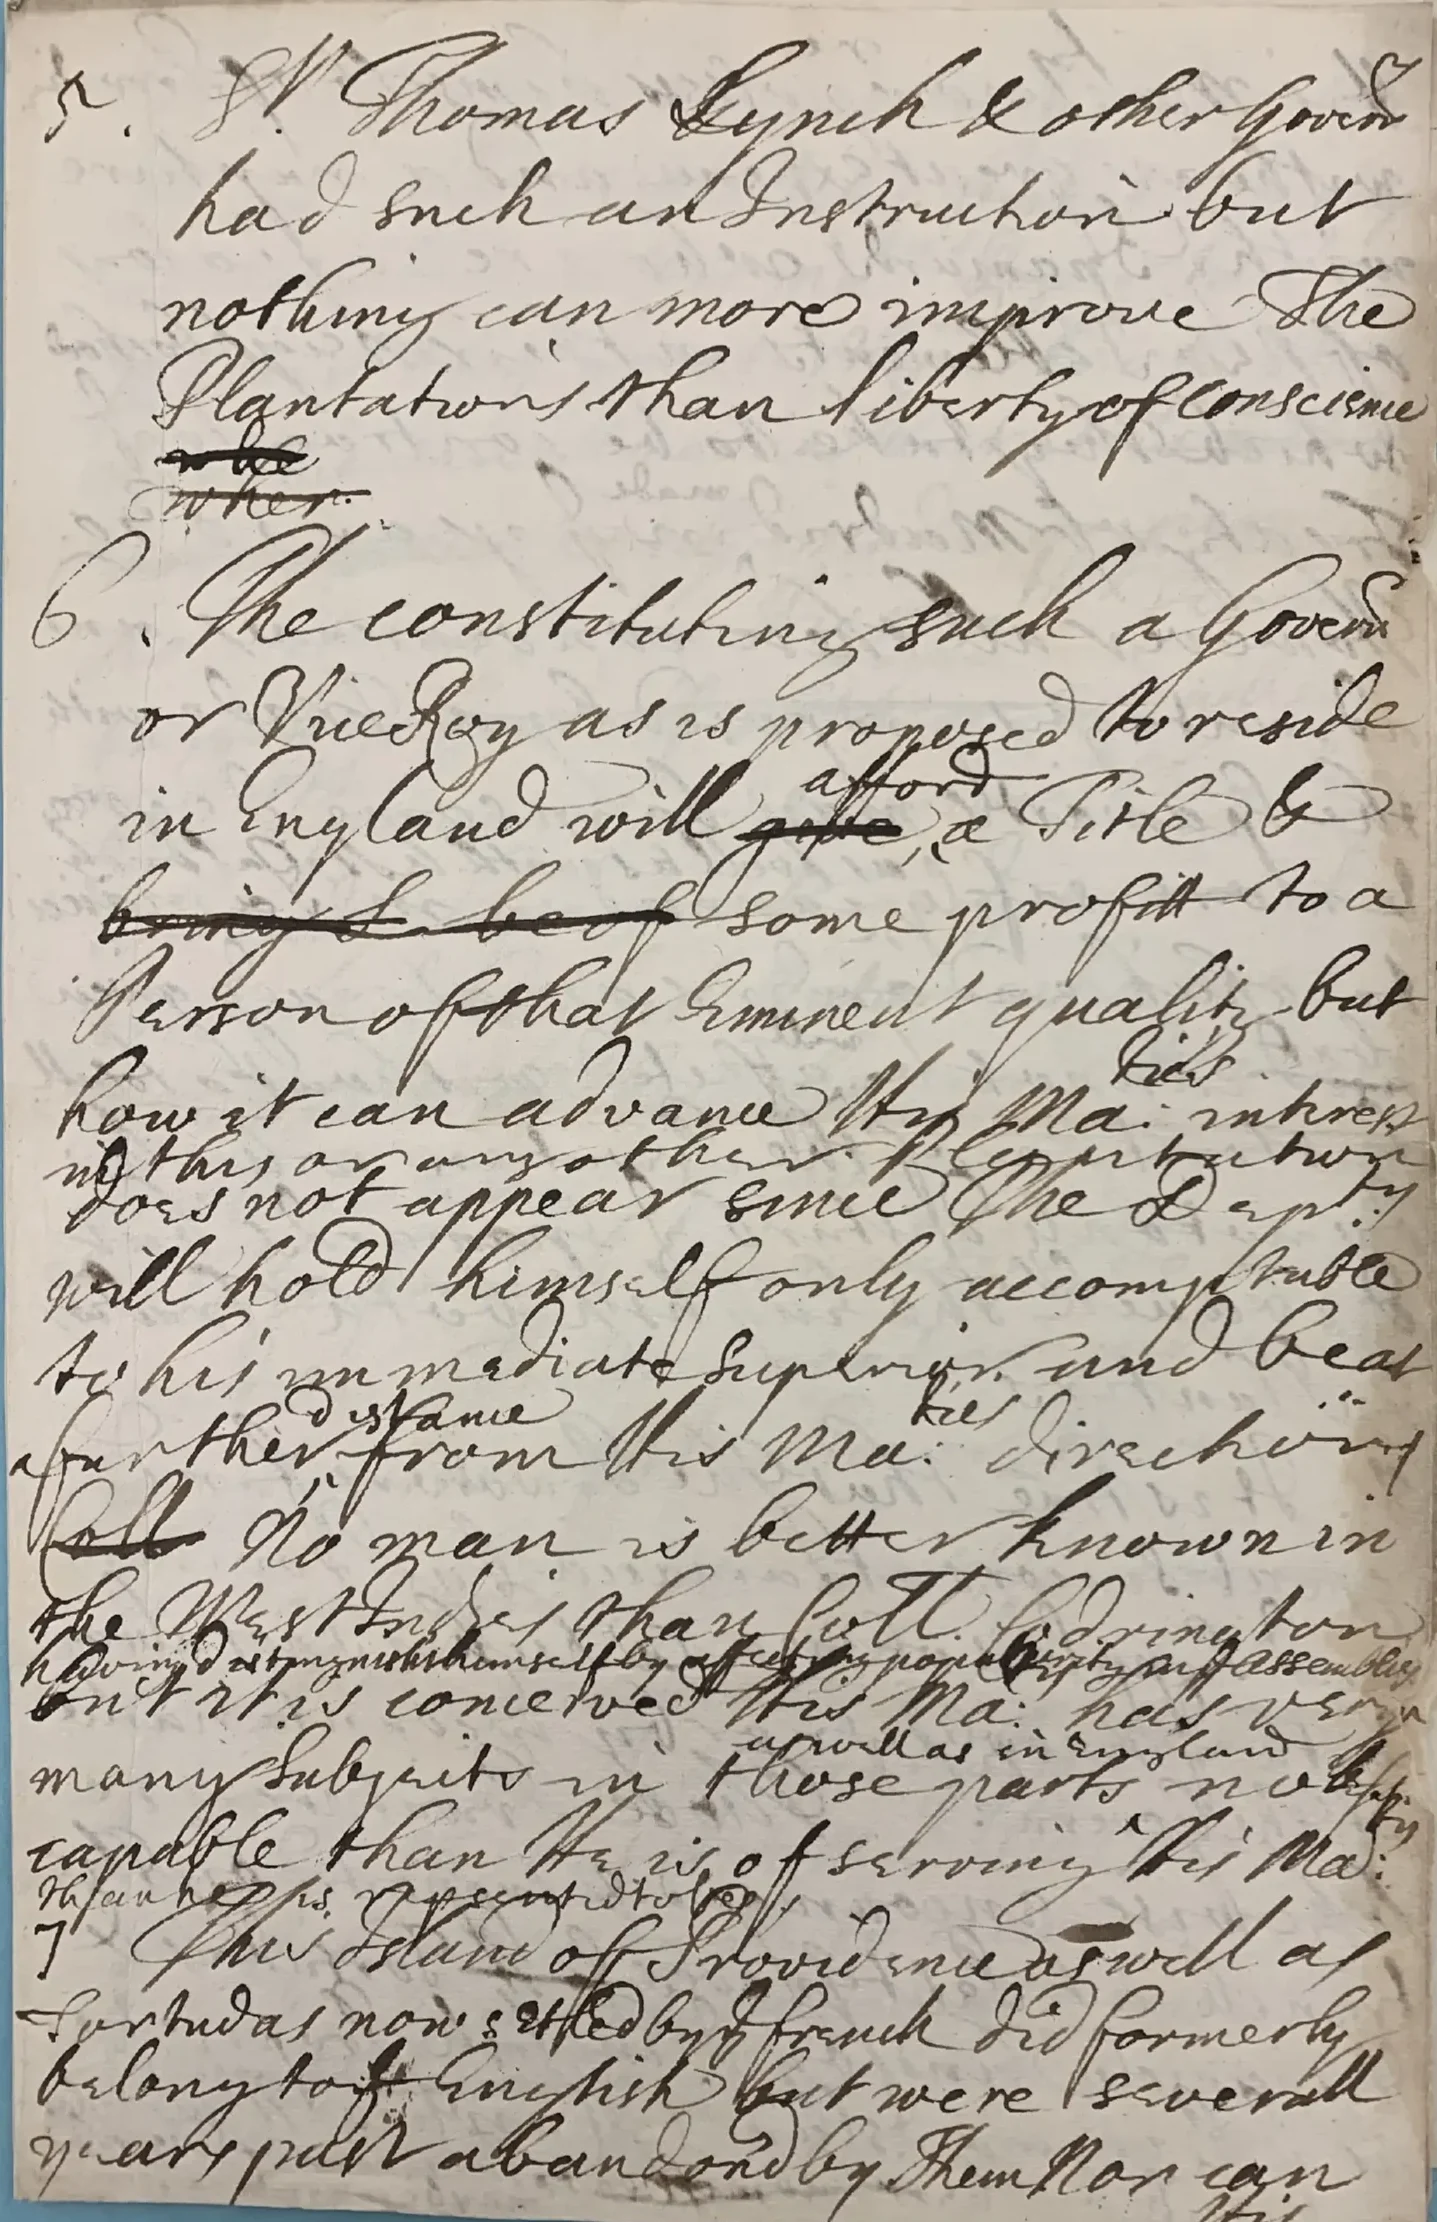 5. Sr. Thomas Lynch & other Governrs
had such an Instruction but
nothing can more improve The
Plantations than liberty of conscience
when
6. The constituting such a Governr
or ViceRoy as is proposed to reside
afford
in England will give a Title &
bring & be of some profitt to a
Person of that Eminent quality but
ties
how it can advance His Ma: interest
in this or any other Plantation
does not appear since The Depty
will hold himself only accomptable
to his immediate superior and beat
distance
a further from His Ma: directions
ties
Coll No man is better known in
the West Indies than Coll. Codrington
having distinguisht himself by affecting popularity in Assemblys
but it is conceived His Ma: has very
as well as in England
many Subjects in those parts no less
capable than He is of serving His Ma: ty
represented to be
7 This Island of Providence as well as
Tortudas now setled by ye french did formerly
belong to ye English but were severall
years past abandond by Them Nor can
His